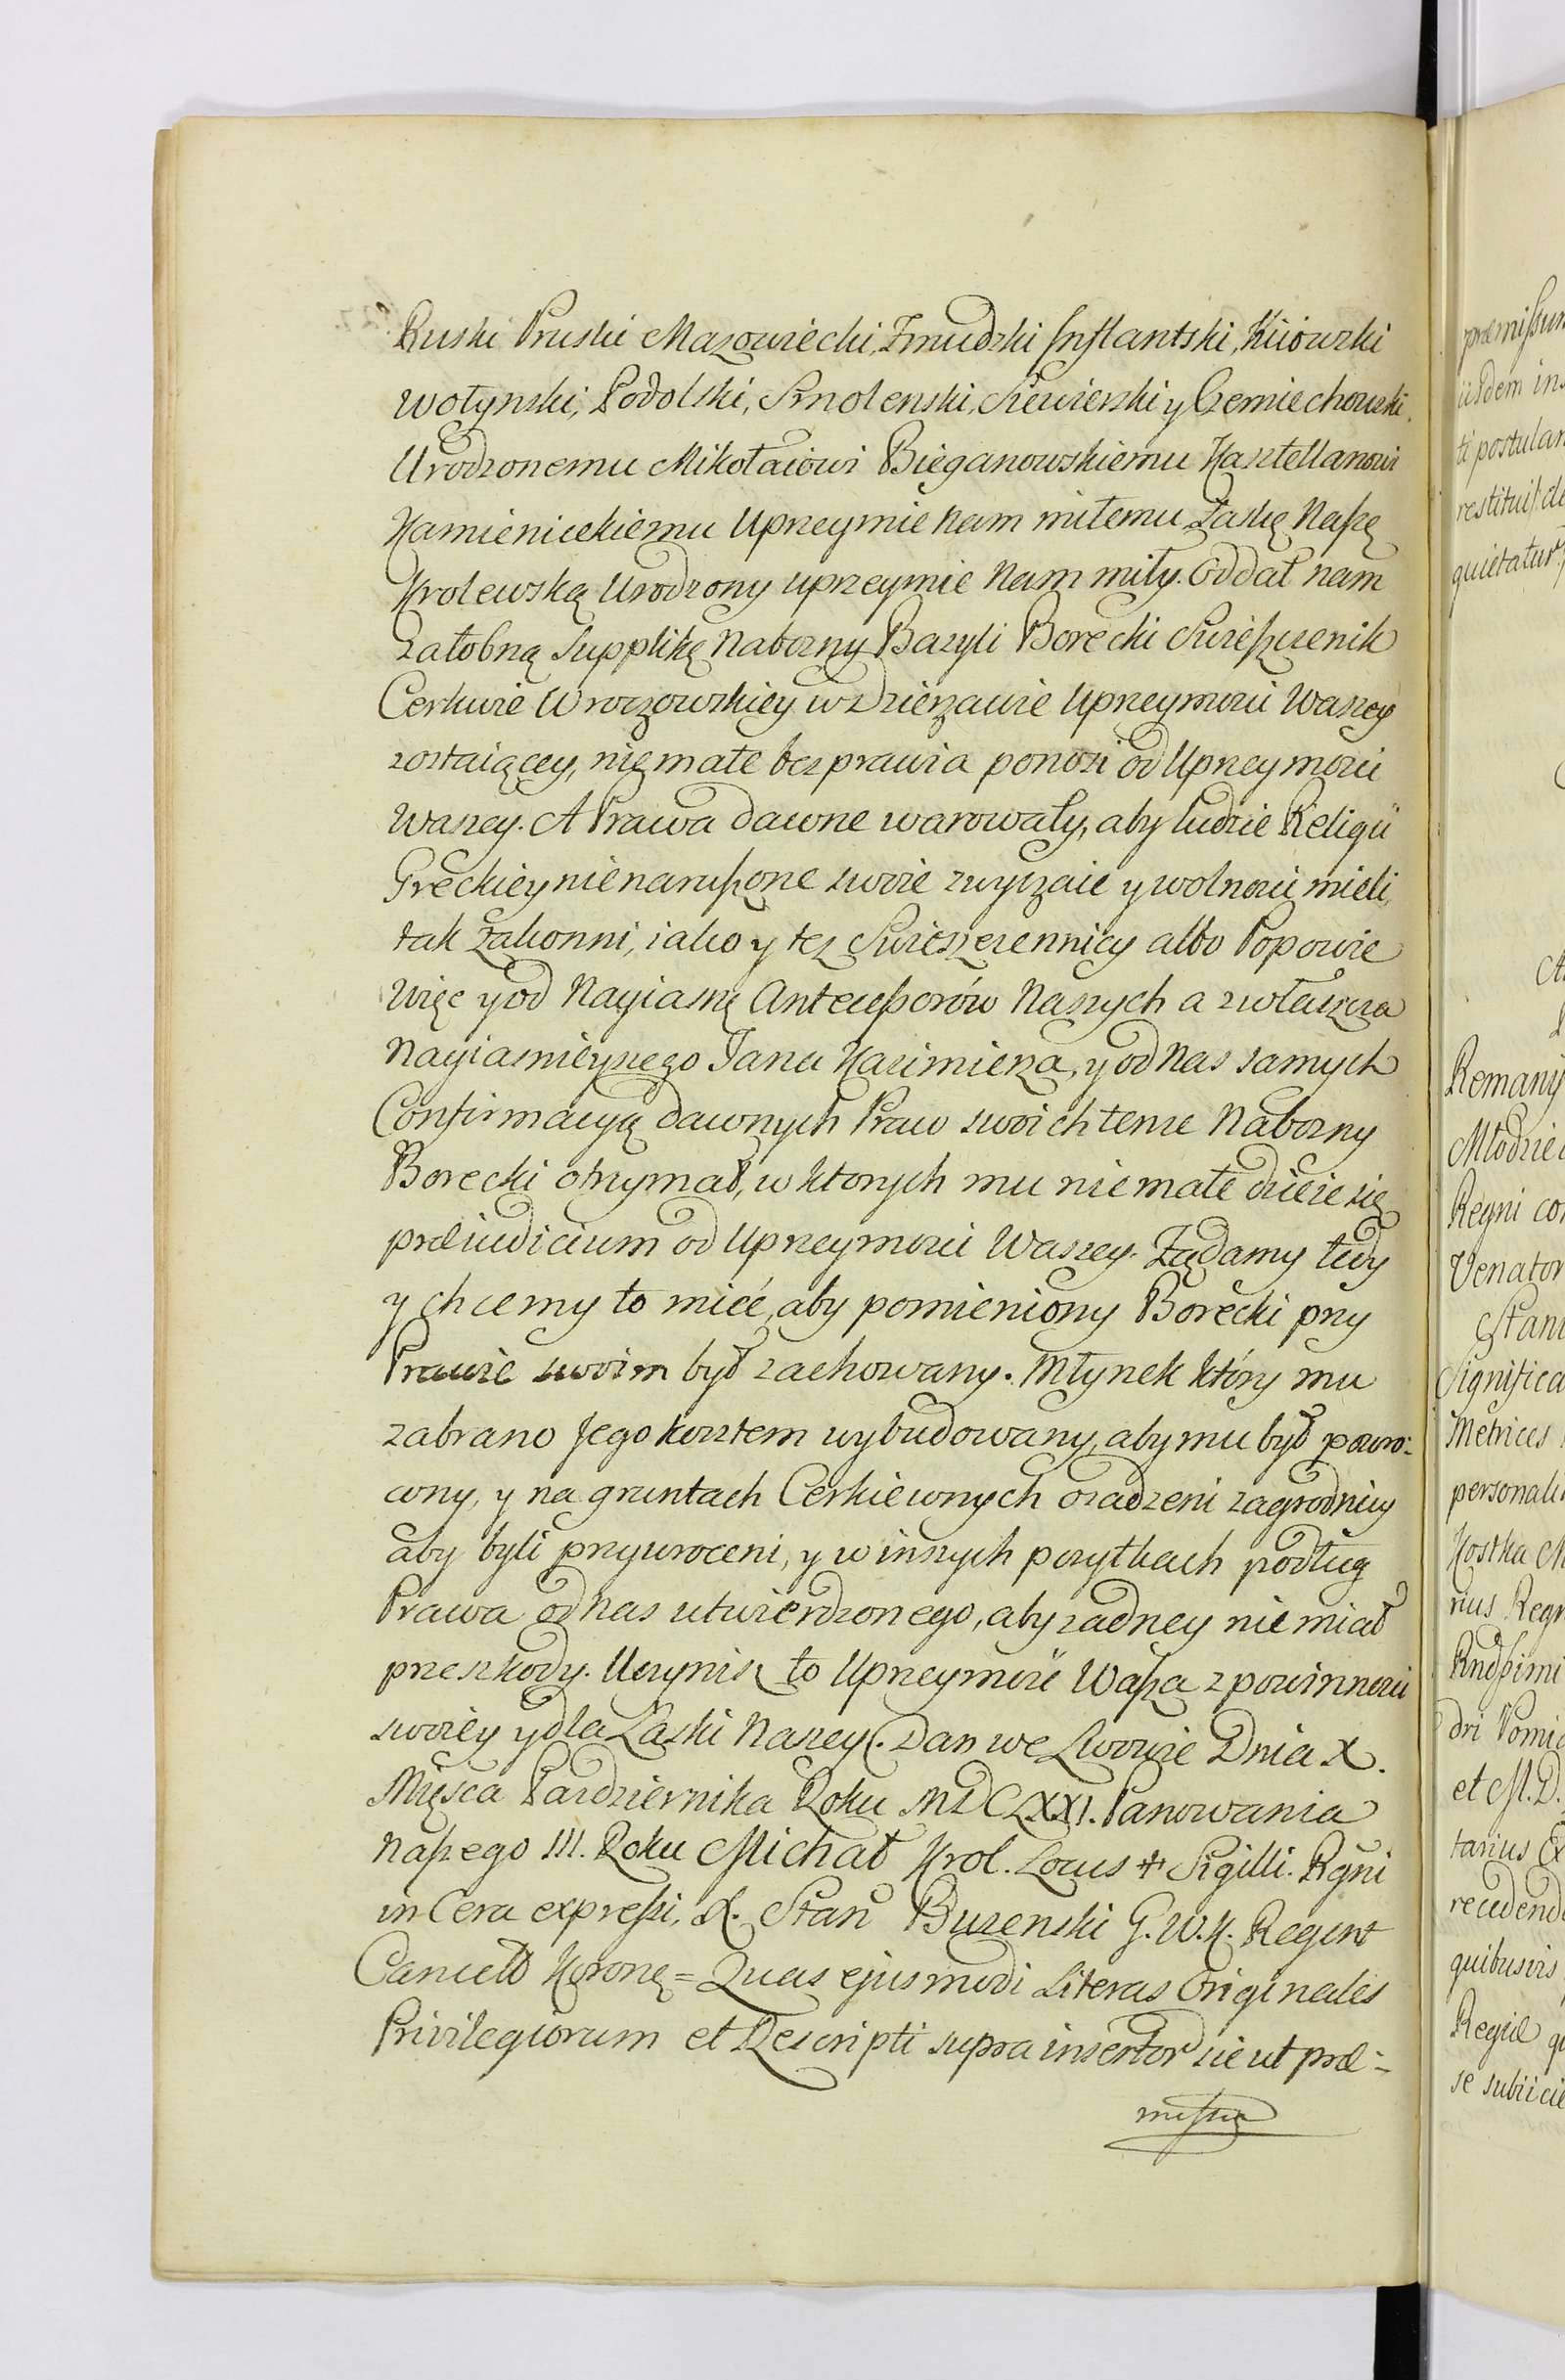 Ruski Pruski Mazowiecki, Zmudzki Inflantski, Kiiowski
Wołynski, Podolski, Smolenski, Siewierski y Czerniechowski.
Urodzonemu Mikołaiowi Bieganowskiemu Kasztellanowi
Kamienickiemu Uprzeymie nam miłemu Łaskę Naszę
Krolewską Urodzony uprzeymie nam miły. Oddał nam
żałobną supplikę Nabożny Bazyli Borecki Swieszczenik
Cerkwie Wroczowskiey w Dzierzawie Uprzeymosci Waszey
zostaiącey, nię małe bezprawia ponosi od Uprzeymosci
Waszey. A Prawa dawne warowały, aby ludzie Religii
Greckiey nienaruszone swoie zwyczaie y wolnosci mieli,
tak zakonni, iako y tez Swieszczennicy albo Popowie
Więc y od Nayiasnę Antecessorów Naszych a zwłaszcza
Nayiasnieyszego Jana Kazimierza, y od Nas samych
Confirmacyą dawnych Praw swoich tenze Nabozny
Borecki otrzymał, w ktorych mu nie małe dzieie się
præiudicium od Uprzeymosci Waszey. Ządamy tedy
y chcemy to mieć, aby pomieniony Borecki przy
Prawie swoim był zachowany. Młynek który mu
zabrano Jego kosztem wybudowany, aby mu był powro-
cony, y na gruntach Cerkiewnych osadzeni zagrodnicy
aby byli przywroceni, y w inszych pozytkach podług
Prawa od Nas utwierdzonego, aby zadney nie miał
przeszkody. Uczynisz to Uprzeymosć Wasza z powinnosci
swoiey y dla Łaski Naszey. Dan we Lwowie Dnia X.
Mięsca Pazdziernika Roku MDCLXXI. Panowania
Naszego III. Roku Michał Krol. Locus + Sigilli. Rgni
in Cera expressi. X. Stan Buzenski G. W. K. Regent
Cancell Koronę = Quas ejusmodi Literas Originales
Privilegiorum et Rescripti supra insertor sic ut præ-
missa
præmissum
iisdem ins
ti postulan
restituit de
quietatur.
Remany
Młodzie
Regni co
Venator
Stani
Significa
Metrices
personali
Kostka
rius Regn
Rndssimi
dri Pomi
et M. D.
tarius Ex
recedend
quibusvis
Regiæ q
se subiicie